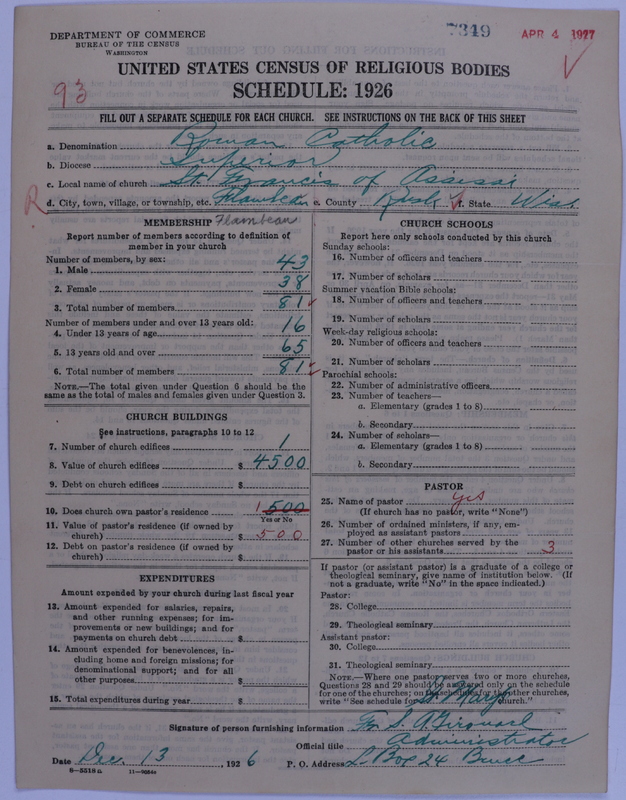 DEPARTMENT OF COMMERCE
BUREAU OF THE CENSUS
WASHINGTON
7349
APR 4 1927
93
UNITED STATES CENSUS OF RELIGIOUS BODIES
SCHEDULE: 1926
FILL OUT A SEPARATE SCHEDULE FOR EACH CHURCH. SEE INSTRUCTIONS ON THE BACK OF THIS SHEET
a. Denomination Roman Catholic
b. Diocese Superior
c. Local name of church St. Francis of Assissi
R d. City, town, village, or township, etc. Flambeau e. County Rusk f. State Wisc
MEMBERSHIP Flambeau
Report number of members according to definition of
member in your church
Number of members, by sex:
1. Male 43
2. Female 38
3. Total number of members 81
Number of members under and over 13 years old:
4. Under 13 years of age 16
5. 13 years old and over 65
6. Total number of members 81
NOTE.—The total given under Question 6 should be the
same as the total of males and females given under Question 3.
CHURCH BUILDINGS
See instructions, paragraphs 10 to 12
7. Number of church edifices 1
8. Value of church edifices $ 4500
9. Debt on church edifices $
10. Does church own pastor's residence 1 500
Yes or No
11. Value of pastor's residence (if owned by
church) $ 500
12. Debt on pastor's residence (if owned by
church) $
EXPENDITURES
Amount expended by your church during last fiscal year
13. Amount expended for salaries, repairs,
and other running expenses; for im-
provements or new buildings; and for
payments on church debt $
14. Amount expended for benevolences, in-
cluding home and foreign missions; for
denominational support; and for all
other purposes $
15. Total expenditures during year $
CHURCH SCHOOLS
Report here only schools conducted by this church
Sunday schools:
16. Number of officers and teachers
17. Number of scholars
Summer vacation Bible schools:
18. Number of officers and teachers
19. Number of scholars
Week-day religious schools:
20. Number of officers and teachers
21. Number of scholars
Parochial schools:
22. Number of administrative officers
23. Number of teachers—
a. Elementary (grades 1 to 8)
b. Secondary
24. Number of scholars—
a. Elementary (grades 1 to 8)
b. Secondary
PASTOR
25. Name of pastor yes
(If church has no pastor, write "None")
26. Number of ordained ministers, if any, em-
ployed as assistant pastors
27. Number of other churches served by the
pastor or his assistants 3
If pastor (or assistant pastor) is a graduate of a college or
theological seminary, give name of institution below. (If
not a graduate, write "No" in the space indicated.)
Pastor:
28. College
29. Theological seminary
Assistant pastor:
30. College
31. Theological seminary
NOTE.—Where one pastor serves two or more churches,
Questions 28 and 29 should be answered only on the schedule
for one of the churches; on the schedules for the other churches,
write "See schedule for St. Mary's church."
Signature of person furnishing information Fr. S. A. Girouard
Official title Administrator
Date Dec. 13 1926 P. O. Address L. Box 24 Bruce
8—5518 a 11—9664a